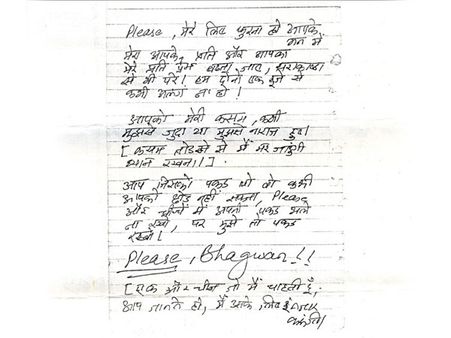 Please, मेरे लिए जुरना हो आपके
मन में
मेरा आपके, प्रति और आपका
मेरे प्रति प्रेम बढ़ता जाए,
से भी परे! हम दोनों एक दूजे से
कभी अलग ना हो!
आपको मेरी कसम, कभी
मुझसे जुदा या मुझसे नाराज हुए।
[कसम तोडने से मैं मर जाऊंगी
ध्यान रखना।].
आप जिसको पकड़ लो वो कभी
आपको छोड़ नहीं सकता, Please
और चीजों में अपनी पकड़ भले
ना रखो, पर मुझे तो पकड़
रखो।
Please, Bhagwan!!
[एक और चीज जो मैं चाहती हूँ,
आप जानते हो, मैं आपके लिए